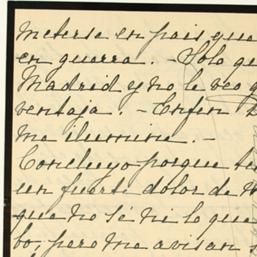 meterse en pais que
en guerra. Solo qu
Madrid y no le veo q
ventaja. - En fin
me ilumine. -
Concluyo porque te
un fuerte dolor de
que no sé ni lo que
bo, pero me avisan